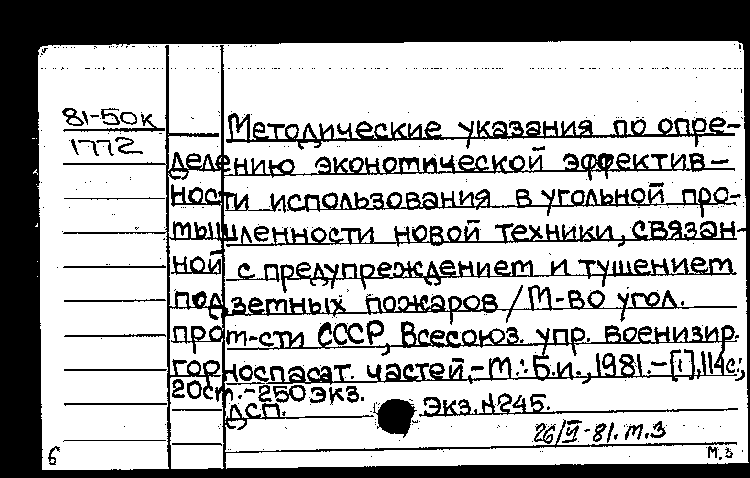 81-50к
1772
Методические указания по опре-
делению экономической эффектив-
ности использования в угольной про-
мышленности новой техники, связан-
ной с предупреждением и тушением
подземных пожаров / М-во угол.
пром-сти СССР, Всесоюз. упр. военизир.
горноспасат. частей,-М.: Б.и., 1981.-[1], 114с.;
20см.-250экз.
ДСП. Экз.№245.
26/VI-81. М.З
6 М.З